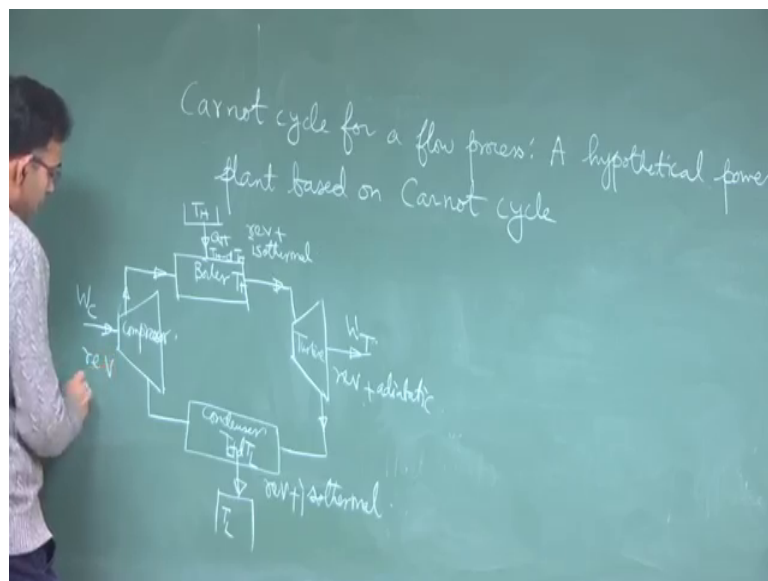 Carnot cycle for a flow process: A hypothetical power
plant based on Carnot cycle
TH
rev+
isothermal
Boiler TH
WC
Compressor
rev
Turbine
WT
rev + adiabatic
Condenser
rev + isothermal
TL